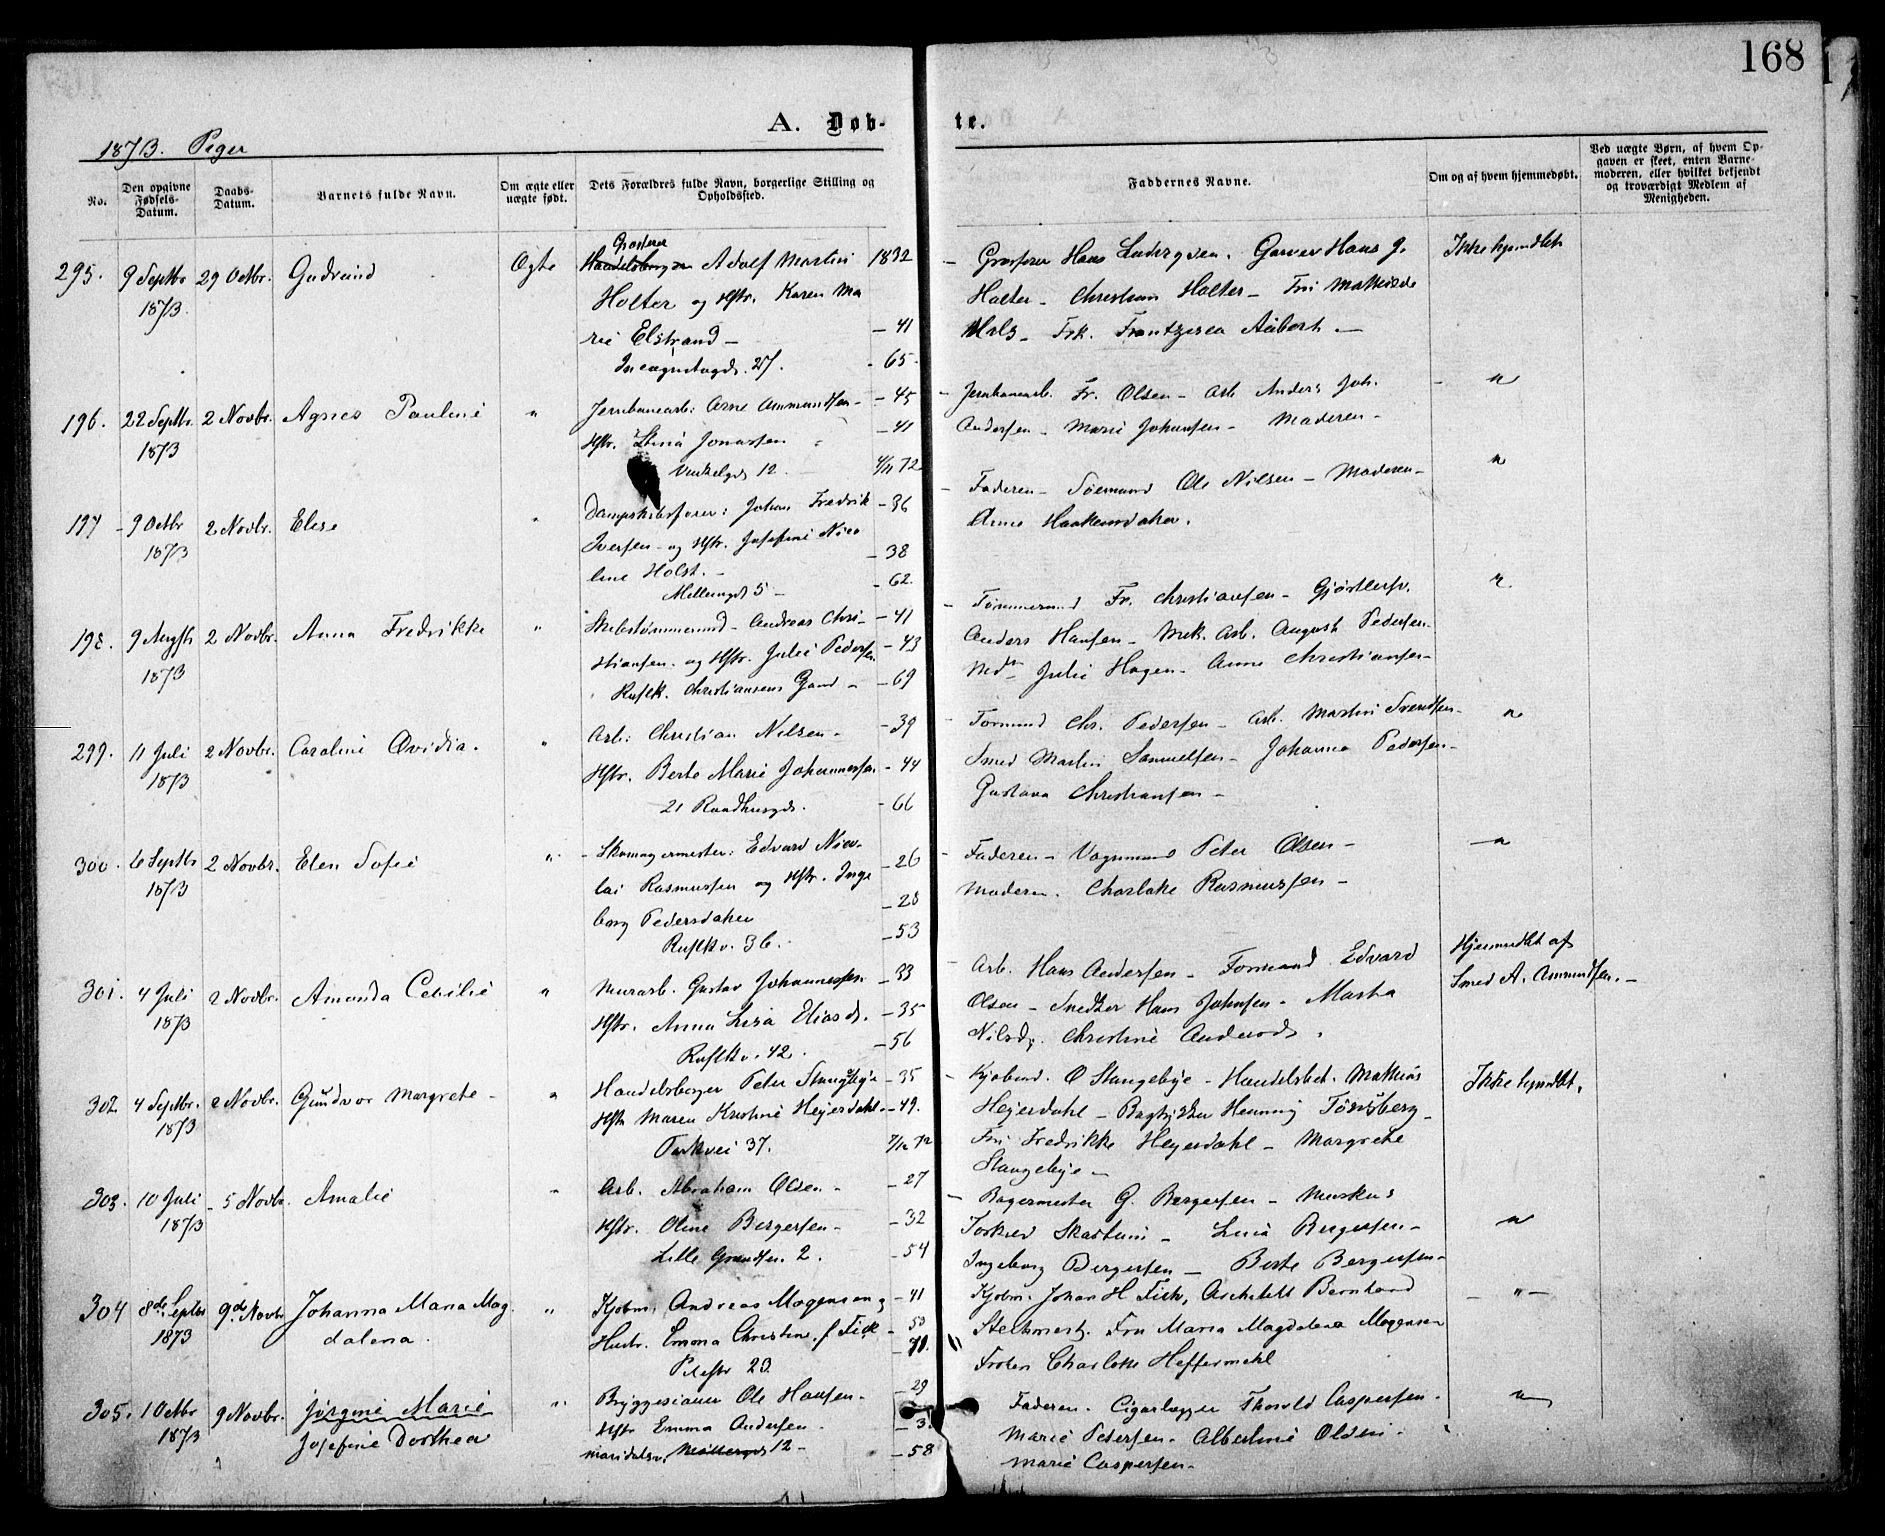 168
A. Døb-
te.
1873. Piger
No.
Den opgivne Fødsels-Datum.
Daabs-Datum.
Barnets fulde Navn.
Om ægte eller uægte født.
Dets Forældres fulde Navn, borgerlige Stilling og Opholdssted.
Faddernes Navne.
Om og af hvem hjemmedøbt.
Ved uægte Børn, af hvem Opgaven er skeet, enten Barnemoderen, eller hvilket bekjendt og troværdigt Medlem af Menigheden.
295. 9 Septbr 1873. 29 Octbr. Gudrund Ægte
Grosserer Adolf Martin 1832
Holter og Hstr. Karen Ma
rie Elstrand — — 41
27. - 65.
Grosserer Hans Garver Hans J.
Holter — Christian Holter — Frk.
— Frk. Aubert —
196. 22 Septbr. 1873 2 Novbr. Agnes Pauline "
Jernbanearb: Arne Ammundsen — — 45
Hstr. Jonassen — 41
12. 4/11 72
Jernbanearb. Fr. Olsen — Arb. Anders Joh.
Andersen — Marie Johansen — Moderen —
"
197 — 9 Octbr 1873 2 Novbr. Elise "
Dampskibsfører: Johan Fredrik — 36
Iversen — og Hstr. Josefine Nico — 38
line Holst. —
Møllergd 5 — — 62.
Faderen — Ole Nilsen — Moderen —
Anne
"
198. 9 Augst 1873 2 Novbr. Anna Fredrikke "
Skibstømmermd — Andreas Chri- — 41
stiansen. og Hstr. Julie Pedersen — 43
Ruslk. Christiansens Gaard — — 69
Tømmermd Fr. Christiansen — Gjørtlersv.
Anders Hansen — Mek. Arb. August Pedersen —
Julie Hagen — Anne Christiansen —
"
299. 11 Juli 1873 2 Novbr. Caroline Ovidia. "
Arb: Christian Nilsen — — 39
Hstr. Berte Marie Johannessen — 44
21 Raadhusgd. — 66
Formand Chr. Pedersen — Arb. Martin Svendsen —
Smed Martin Samuelsen — Johanna Pedersen —
Gustava Christiansen —
"
300. 6 Septbr 1873 2 Novbr. Elen Sofie "
Skomagermester: Edvard Nico- — 26
lai Rasmussen og Hstr. Inge — 28
borg Pedersdatter
Ruslkv. 36. — 53
Faderen — Vognmand Peter Olsen —
Moderen. Charlotte Rasmussen —
"
301. 4 Juli 1873 2 Novbr. Amanda Cecilie "
Murarb. Gustav Johannessen — 33
Hstr. Anna Lisa Eliasd. — 35
Ruslkv. 42. — 56
Arb. Hans Andersen — Formand Edvard
Olsen — Snedker Hans Johnsen — Martha
Nilsd. Christine
Hjemmedbt af
Smed A. Ammundsen. —
302 4 Septbr. 1873 2 Novbr. Gundvor Margrete — "
Handelsborger Peter Stangebye — 35
Hstr Maren Kristine Heyerdahl — 49.
Parkvei 37. 7/12 72
Kjøbmd. O Stangebye — Handelsbet. Mathias
Heyerdahl — Bogtrykker Henning Tønsberg —
Frk Fredrikke Heyerdahl — Margrete
Stangebye —
Ikke hjmdbt.
303. 10 Juli 1873 — 5 Novbr. Amalie "
Arb. Abraham Olsen — — 27
Hstr. Oline Bergersen — — 32
Lille Grændsen 2. — 54
Bagermester G. Bergersen — Murske
Torkild — Lina Bergersen —
Ingeborg Bergersen — Berte Bergersen —
"
304 8de Septbr 1873 9de Novbr Johanna Maria Mag
dalena. "
Kjøbm. Andreas Mogensen og — 41
Hustr. Emma Christine f. Fick — 50
Pilestr 23 — 71.
Kjøbm. Johan H Fick, Architekt Bernhard
Steckmest, Fru Maria Magdalena Mogensen
Frøken Charlotte Heffermehl
— " —
305. 1 Octbr 1873 9 Novbr. Jørgine Marie
Josefine Dorthea "
Bryggesjauer Ole Hansen — — 29
Hstr Emma Andersen — 3
Maridalsv. Møllergd 12 — — 58
Faderen. Cigarlægger Thorvald Caspersen —
Marie Petersen — Albertine Olsen —
Marie Caspersen —
"